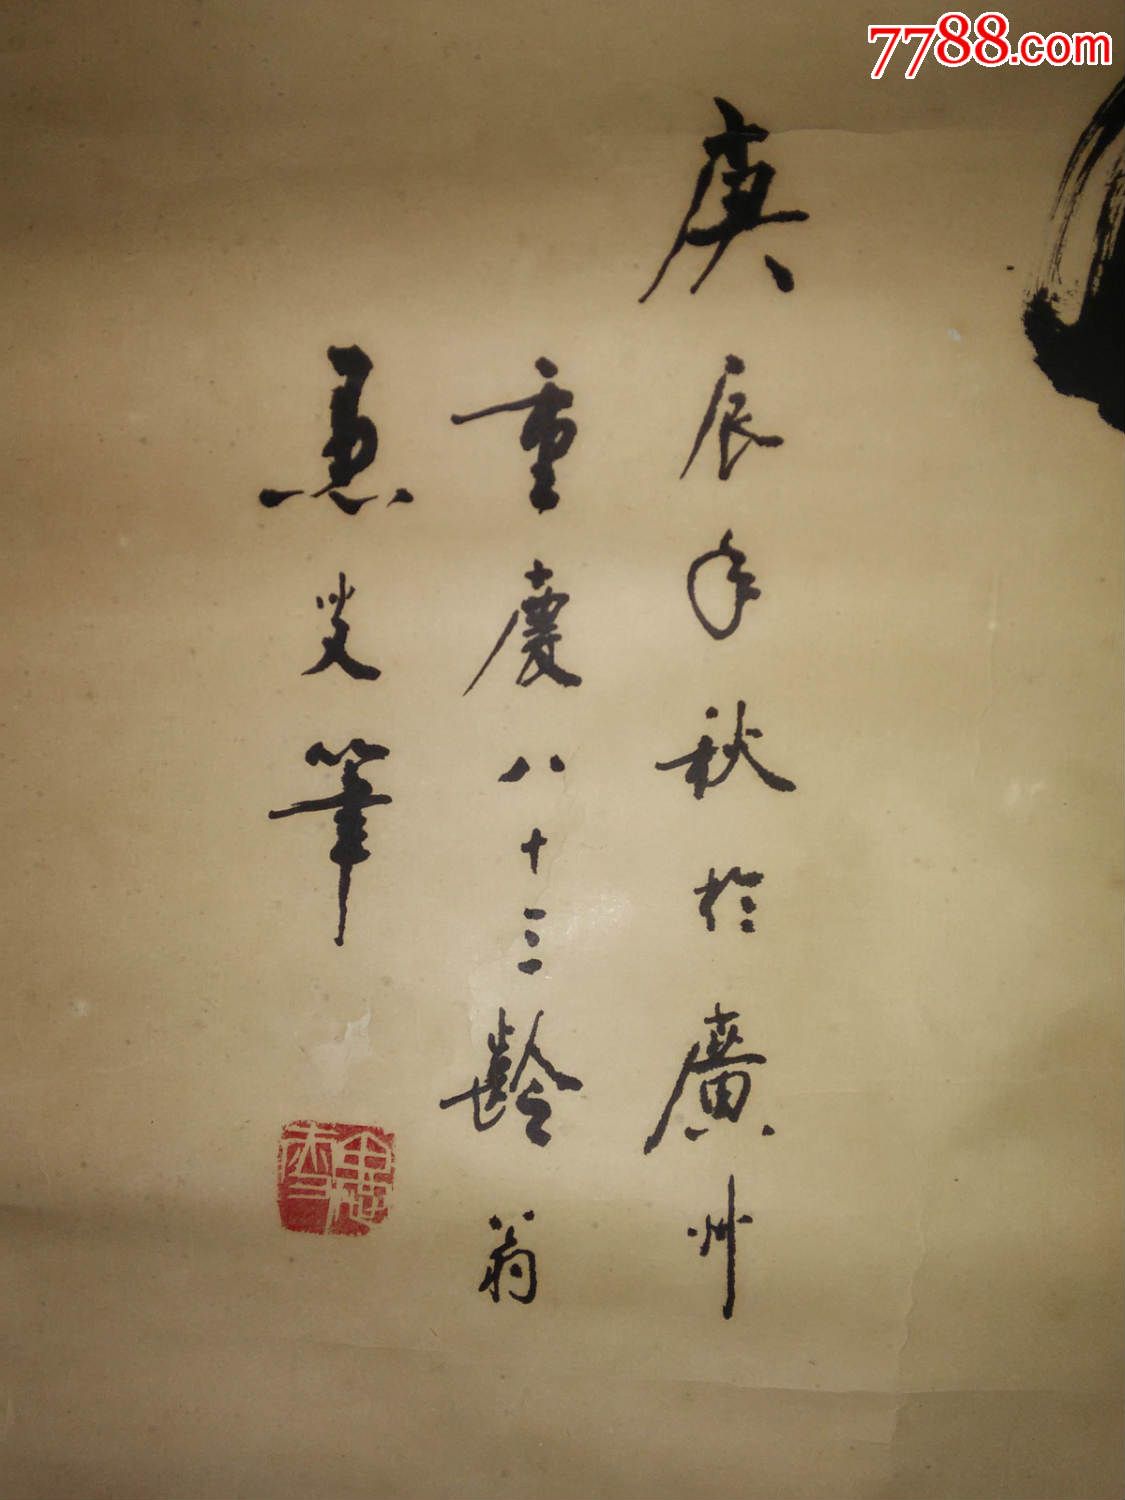 7788.com
庚辰年秋於廣州
重慶八十三齡翁
愚叟筆